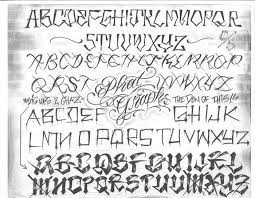 ABCDEFGHIJKLMNOPQR
STUVWXYZ
ABCDEFGHIJKLMNOP
QRST UVWXYZ
Phat
THE DON OF THIS!!
ABCDEF GHIJK
LMNOPQRSTUVWXYZ
ABCDEFGHIJKL
MNOPQRSTUVWXYZ